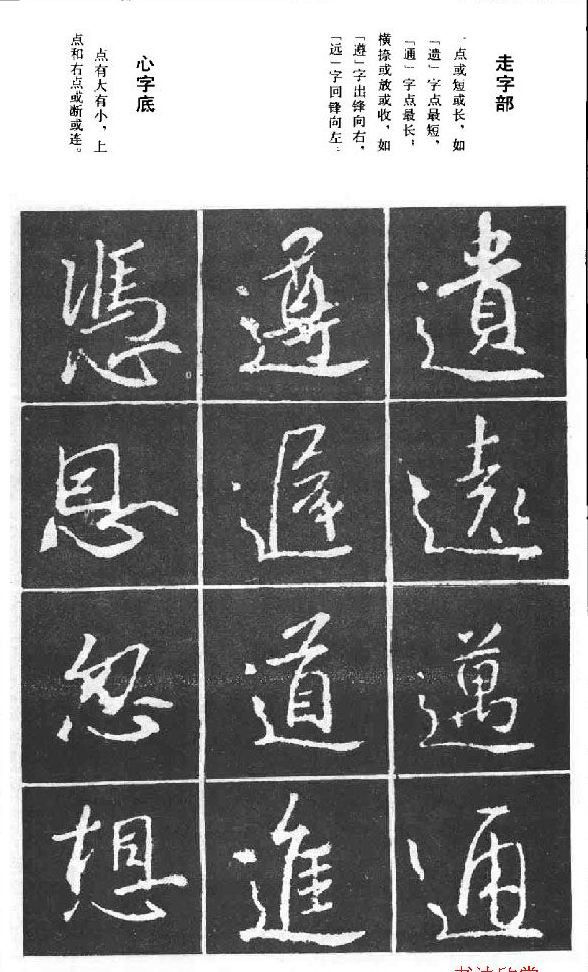 走字部
一点或短或长，如
「遗」字点最短，
「通」字点最长；
横捺或放或收，如
「遵」字出锋向右，
「远」字回锋向左。
心字底
点有大有小，上
点和右点或断或连。
遺
遠
邁
通
遵
遲
道
進
憑
恩
忽
想